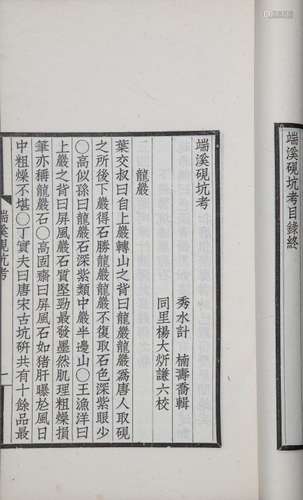 端溪硯坑考目錄終
端溪硯坑考
秀水計　楠壽喬輯
同里楊大炘謙六校
龍巖
葉交叔曰自上巖轉山之背曰龍巖龍巖為唐人取硯
之所後下巖得石勝龍巖龍巖不復取石色深紫眼少
〇高似孫曰龍巖石深紫類中巖半邊山〇王漁洋曰
上巖之背曰屏風巖石質堅勁最發墨然肌理粗燥損
筆亦稱龍巖石〇高固齋曰屏風石如猪肝曝於風日
中粗燥不堪〇丁寶夫曰唐宋古坑硏共有十餘品最
端溪硯坑考
一